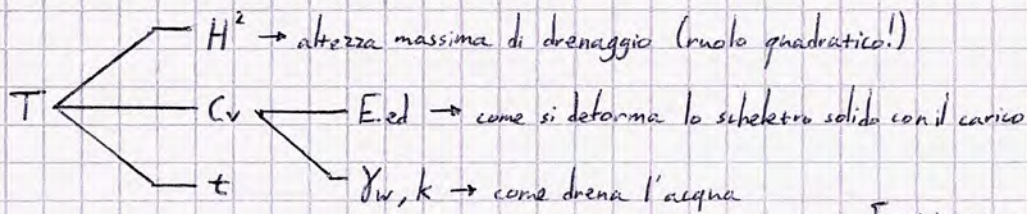 H² → altezza massima di drenaggio (ruolo quadratico!)
T Cv E.ed → come si deforma lo scheletro solido con il carico
t γw, k → come drena l'acqua